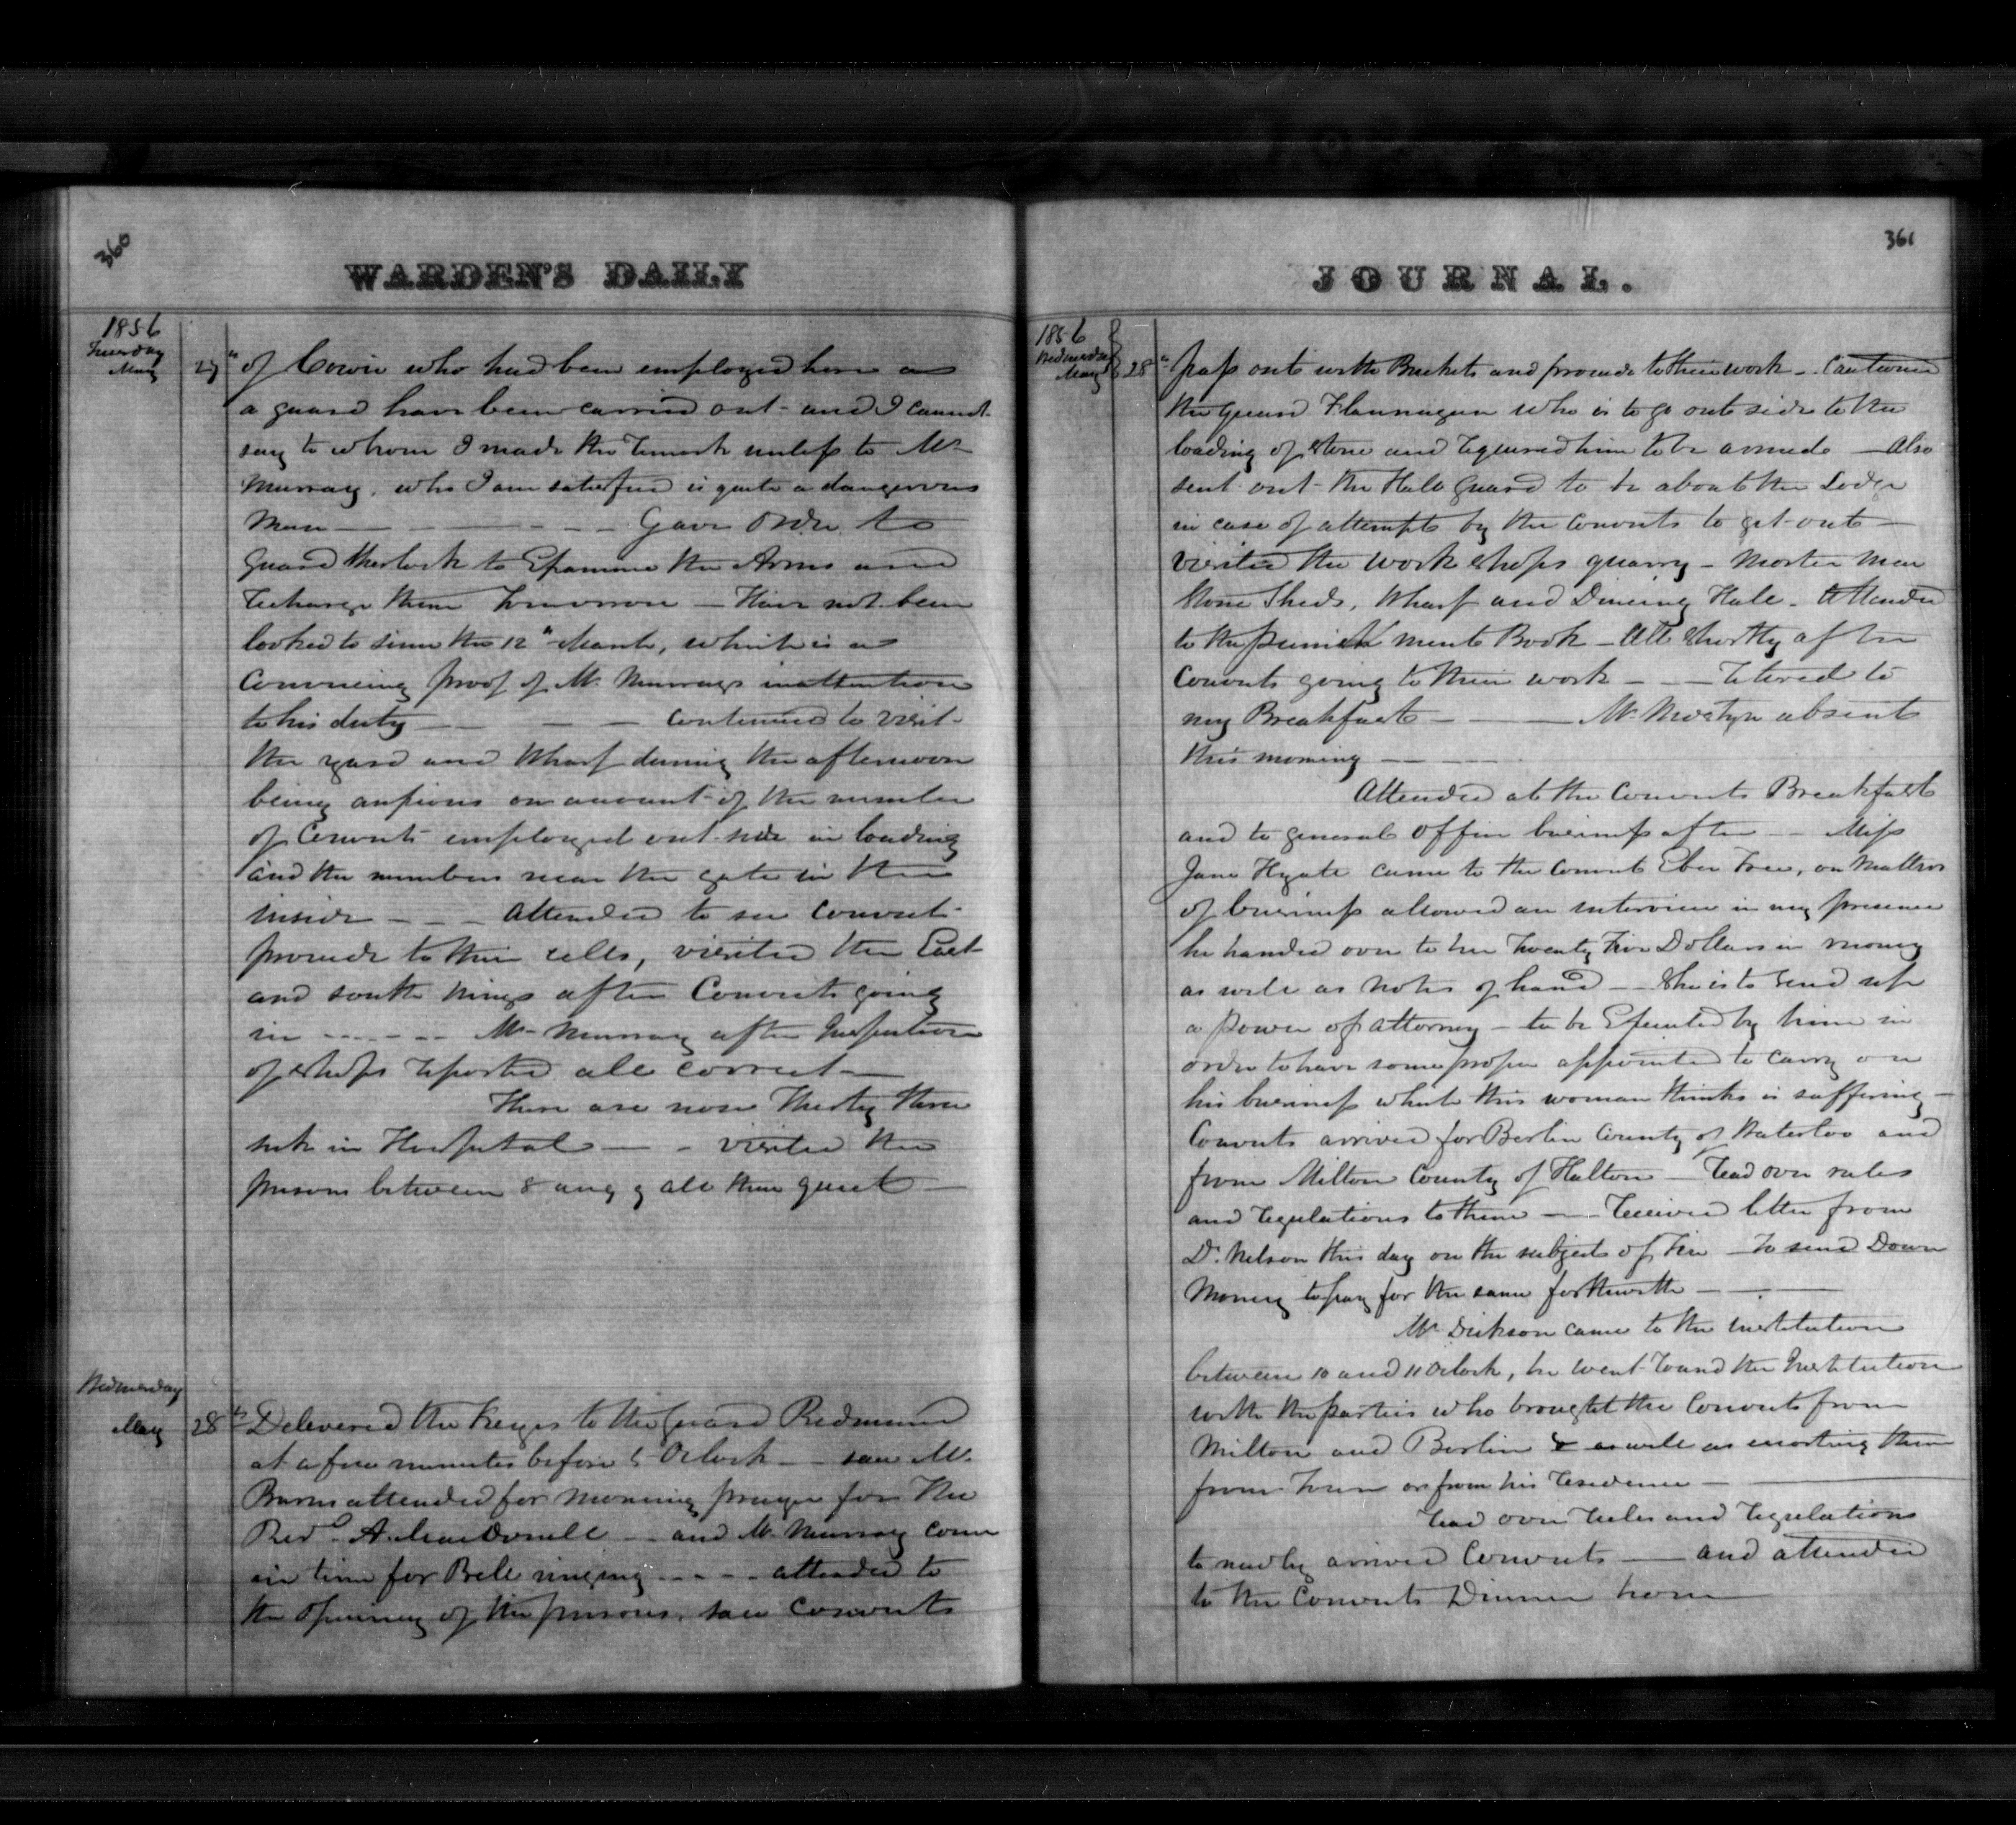 360
WARDEN'S DAILY
1856
Tuesday
May 27th of Cowie who had been employed here as
a guard have been carried out - and I cannot
say to whom I made the remark unless to Mr
Murray, who I am satisfied is quite a dangerous
Man — Gave Order to
Guard Sherlock to Examine the Arms and
recharge them Tomorrow — Have not been
looked to since the 12th March, which is a
Convincing proof of Mr Murrays inattention
to his duty — Continued to visit
the yard and Wharf during the afternoon
being anxious on account of the number
of Convicts employed out side in loading
and the numbers near the gate in the
inside - - - attended to see Convicts
proceede to their cells, visited the East
and south Wings after Convicts going
in - - - - Mr Murray after Inspection
of shops reported all correct —
There are now Thirty three
sick in Hospital — - visited the
prisons between 8 and 9 all then quiet —
Wednesday
May 28th Delivered the Keyes to the Guard Redmund
at a few minutes before 5 Oclock — saw Mr
Burns attended for Morning prayer for the
Revd A. MacDonell — and Mr Murray come
in time for Bell ringing - - - - attended to
the opening of the prisons, saw Convicts
361
JOURNAL.
1856
Wednesday
May 28th pass out with Buckets and proceede to their work — Cautioned
the Guard Flannagan who is to go out side to the
loading of stone and required him to be armed — Also
sent out the Hall Guard to be about the Lodge
in case of attempts by the Convicts to get out —
visited the work shops quarry - Morter Men
Stone Sheds, Wharf and Dineing Hall - Attended
to the punishments Book — All shortly after
Convicts going to their work - - — retired to
my Breakfast — Mr Mostyn absent
this morning —
Attended at the Convicts Breakfast
and to general office business after — Miss
Jane Hyate came to the Convict Eber Tree, on Matters
of business allowed an interview in my presence
he handed over to her Twenty Five Dollars in money
as well as notes of hand — She is to send up
a power of attorney — to be Executed by him in
order to have some proper appointed to carry on
his business which this woman thinks is suffering —
Convicts arrived for Berlin County of Waterloo and
from Milton County of Halton — read over rules
and regulations to them — Received letter from
Dr Nelson this day on the subject of Tea — to send Down
Money to pay for the same forthwith —
Mr Dickson came to the institution
between 10 and 11 Oclock, he went round the Institution
with the parties who brought the Convicts from
Milton and Berlin & as well as escorting them
from town or from his residence —
read over rules and regulations
to newly arrived Convicts — and attended
to the Convicts Dinner hour